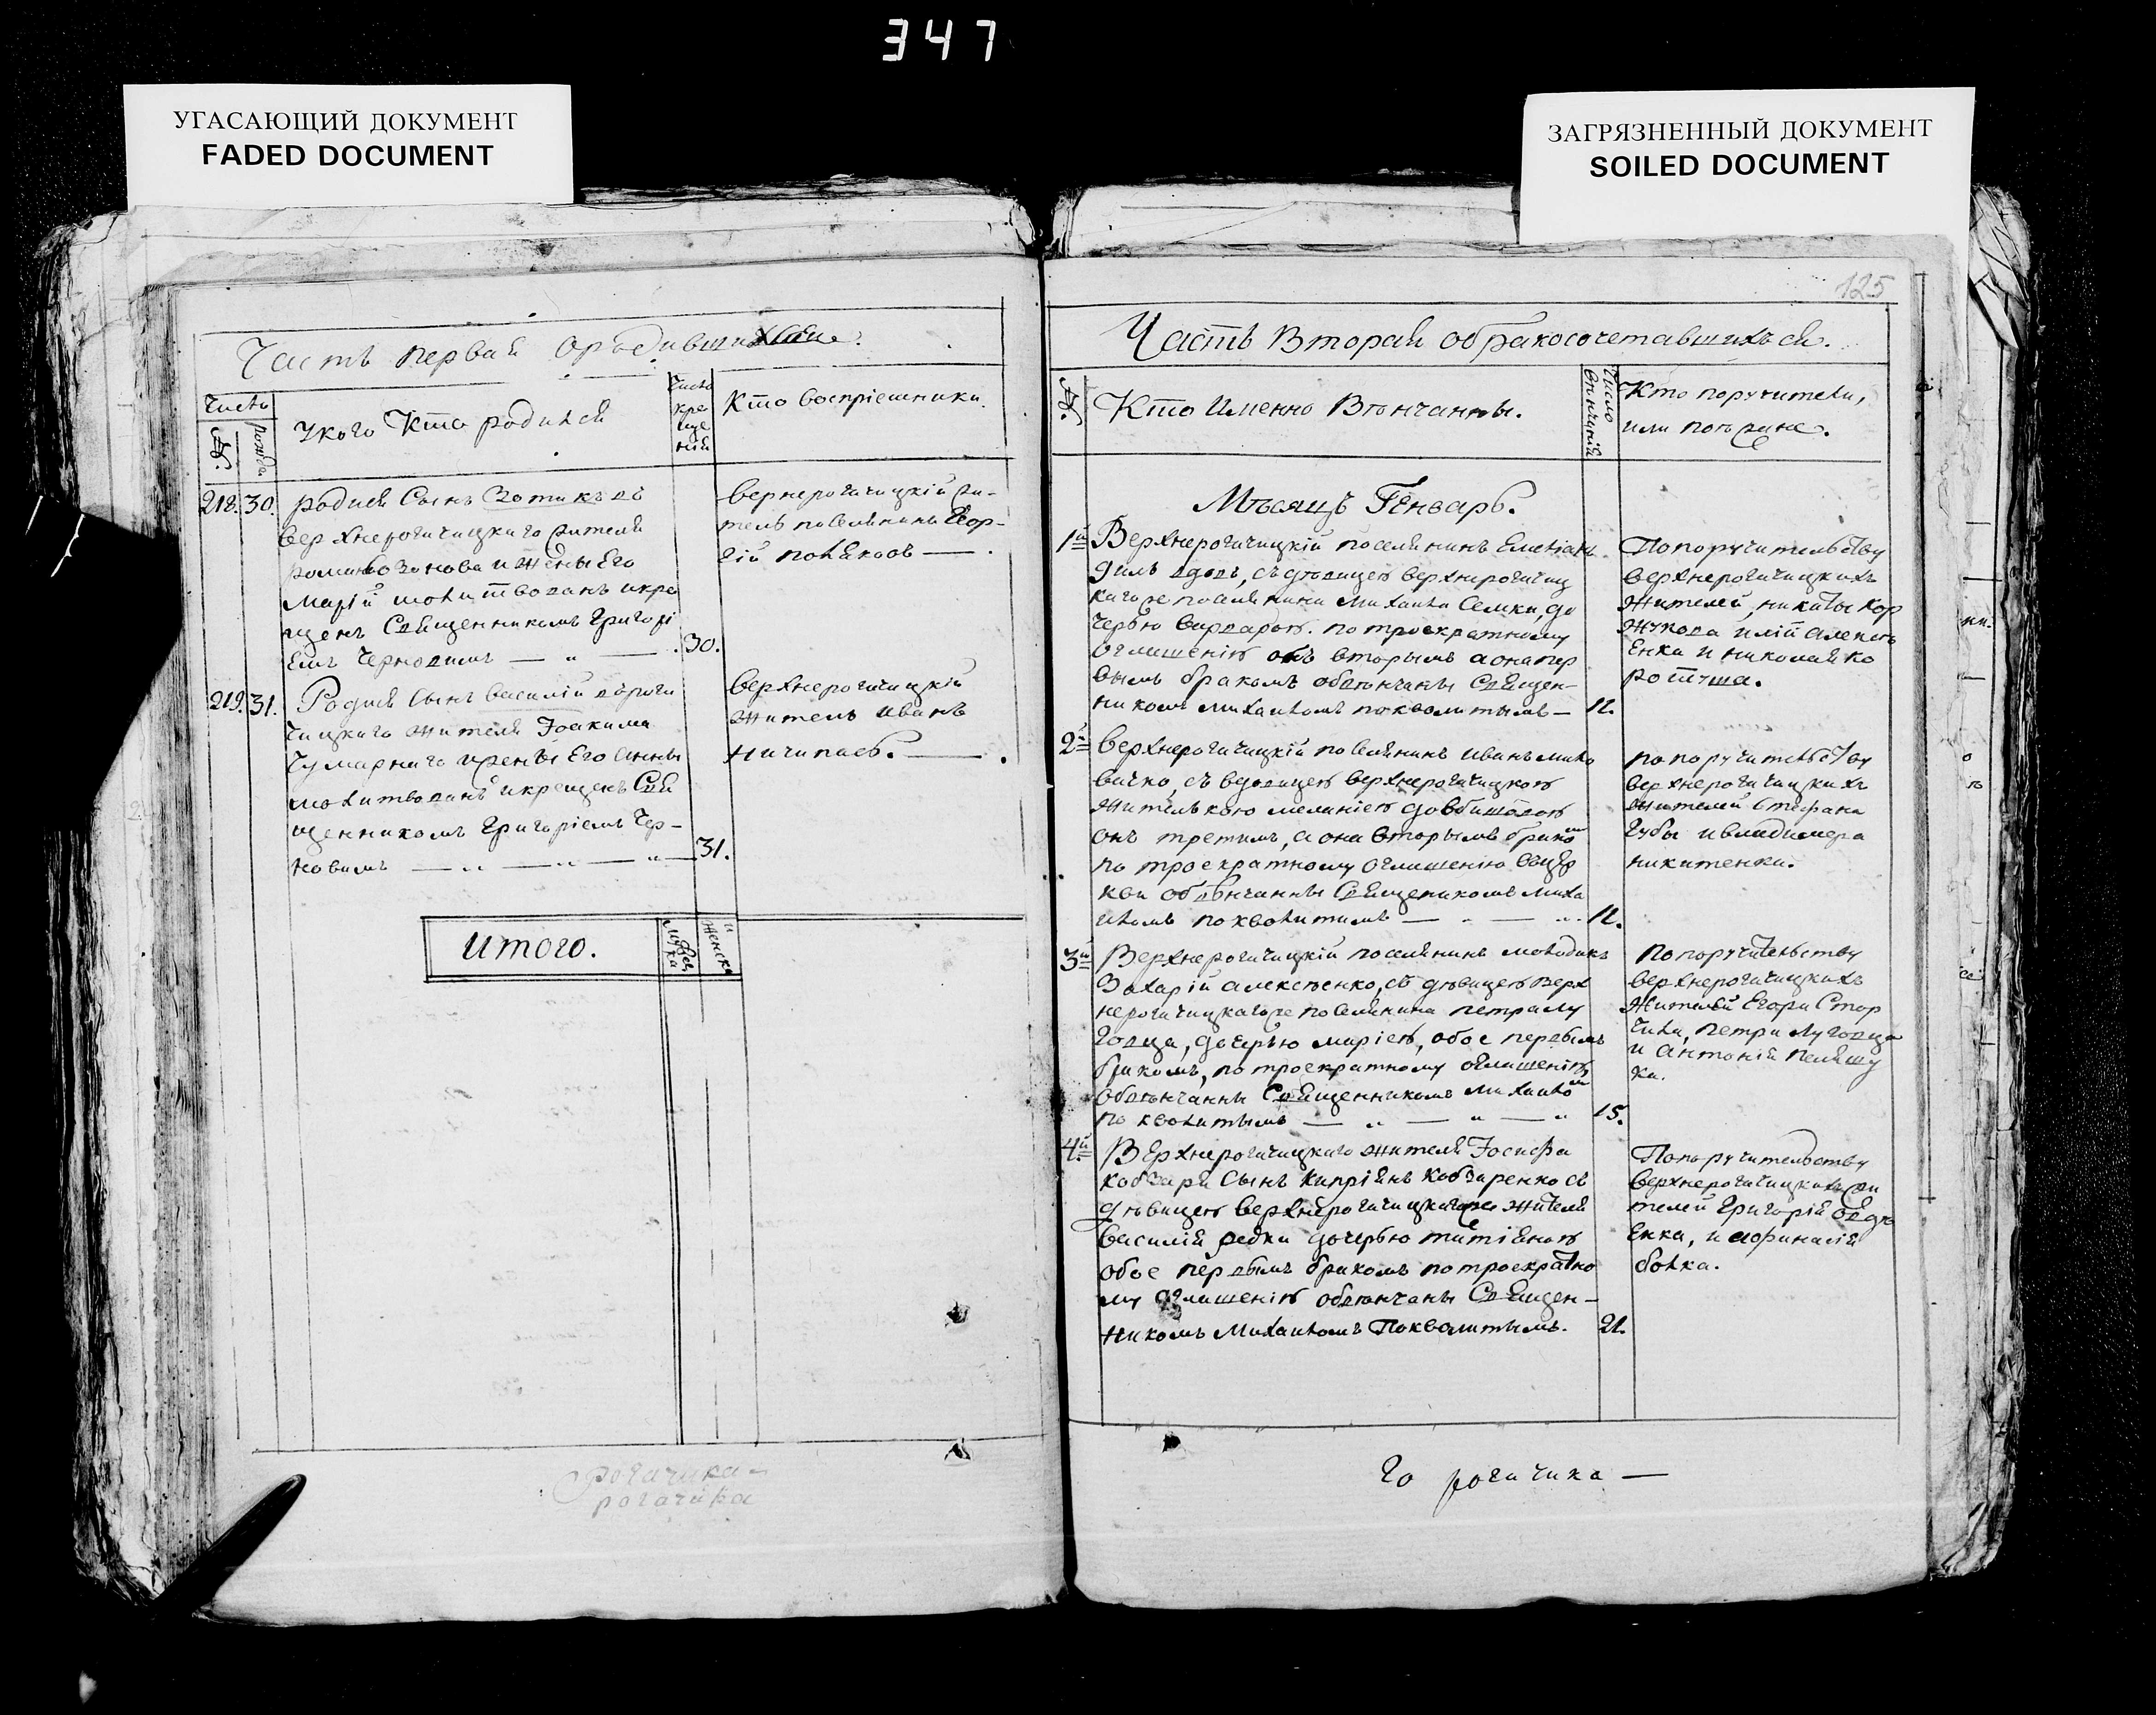 347
УГАСАЮЩИЙ ДОКУМЕНТ
FADED DOCUMENT
ЗАГРЯЗНЕННЫЙ ДОКУМЕНТ
SOILED DOCUMENT
Часть первая
Число
рожде.
У кого Кто родился
Число
кре
ще
ній
Кто воспріемники.
218. 30. родился Сынъ Зотикъ въ
верхнерогачицкаго жителя
и жены Его
Маріи молитвованъ и кре
щенъ Священникомъ Григорі
Емъ Черновимъ — „ — 30.
верхнерогачицкій жи-
тель поселянинъ Геор-
гій поляковъ — .
219. 31. Родился Сынъ Василій в рога
чицкаго жителя Іоакима
Чумарнаго и жены Его Анны
молитвованъ и крещенъ Свя
щенникомъ Григоріемъ Чер-
новимъ — „ — „ — „ — 31.
верхнерогачицкій
житель иванъ
Ничипаевъ. — .
итого.
Муже
ска
женска
рогачика
рогачика
125
Часть Вторая о бракосочетавшихъся.
№.
Кто Именно Вѣнчанны.
Число
вѣнчаній
Кто поручители,
или поѣзжане.
Мѣсяцъ Генварь.
1й Верхнерогачицкій поселянинъ Емеліанъ
вдовъ, съ дѣвицею верхнерогачиц
кагоже поселянина Михаила Семки, до
черью по троекратному
оглашенію онъ вторымъ а она пер
вымъ бракомъ обвѣнчаны Священ-
никомъ Михаиломъ похвалитымъ — 12.
По поручительству
верхнерогачицкихъ
жителей, никиты Кор
Жукова иліи Алексѣ
Енка и николая ко
ротуша.
2й Верхнерогачицкій поселянинъ иванъ мило
вичко, съ вдовицею верхнерогачицкою
жителькою меланіею
онъ третимъ, а она вторымъ брако м
по троекратному оглашенію въ цер
кви обвѣнчанны Священикомъ миха
иломъ похвалитимъ — „ — „ 12.
по поручительству
верхнерогачицкихъ
жителей Стефана
Губы и владимера
никитенка.
3й Верхнерогачицкій поселянинъ молодикъ
Захарій алексѣенко, съ дѣвицею верх
нерогачицкагоже поселянина петра лу
говца, дочерью маріею, обое первымъ
бракомъ, по троекратному оглашенію,
обвѣнчанны Священникомъ Михаило м
похвалитымъ — „ — „ — „ 15.
По поручительству
верхнерогачицкихъ
Жителей Егора Стор
чила, петра Луговца
и антонія пеляшу
ка.
4й Верхнерогачицкаго жителя Іосифа
Кобзаря Сынъ Кипріянъ Кобзаренко съ
дѣвицею верхнерогачицкагоже жителя
василія редки дочерью татіяною
обое первымъ бракомъ по троекратно
му оглашенію обвѣнчаны Священ-
никомъ Михаиломъ Похвалитымъ. 21.
По поручительству
верхнерогачицкихъ жи
телей Григорія
Енка, и афанасія
бойка.
го рогачика —